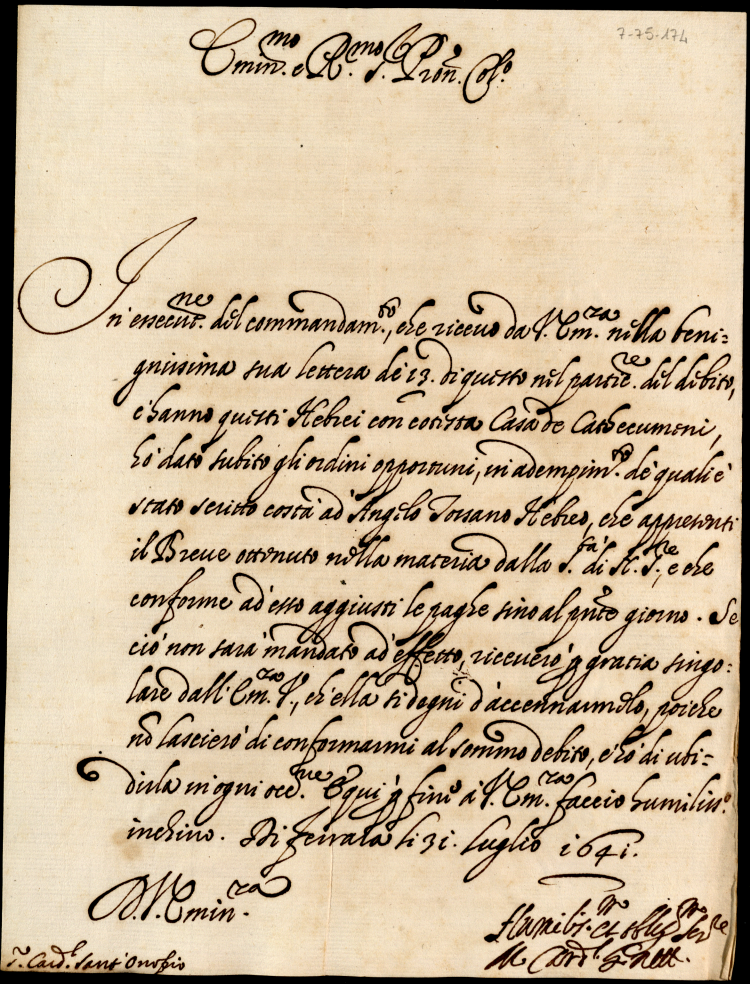 7-75-174
Emin.mo e R.mo S.r P.ron Col.o
In essecut.ne del commandam.to, che ricevo da V. Em.ra nella beni=
gnissima sua lettera de 13. di questo nel partic.re del debito,
c'hanno questi Hebrei con cotesta Casa de Cathecumeni,
hò dato subito gli ordini opportuni, in adempim.to de quali è
stato scritto costà ad Angelo Hebreo, che appresenti
il Breve ottenuto nella materia dalla S.tà di N. S.re, e che
conforme ad esso aggiusti le paghe sino al pnte giorno. Se
ciò non sarà mandato ad effetto, riceverò p gratia singo=
lare dall'Em.ra V., ch'ella si degni d'accennarmelo, poiche
nō lascierò di conformarmi al sommo debito, c'hò di ubi=
dirla in ogni occ.ne E qui p fine à V. Em.ra faccio humiliss.o
inchino. Di Ferrara li 31. Luglio 1641.
D. V. Emin.ra
Humiliss.mo et obblig.mo ser.re
Il Card.l Ginetti
S.r Card.l Sant'Onofrio